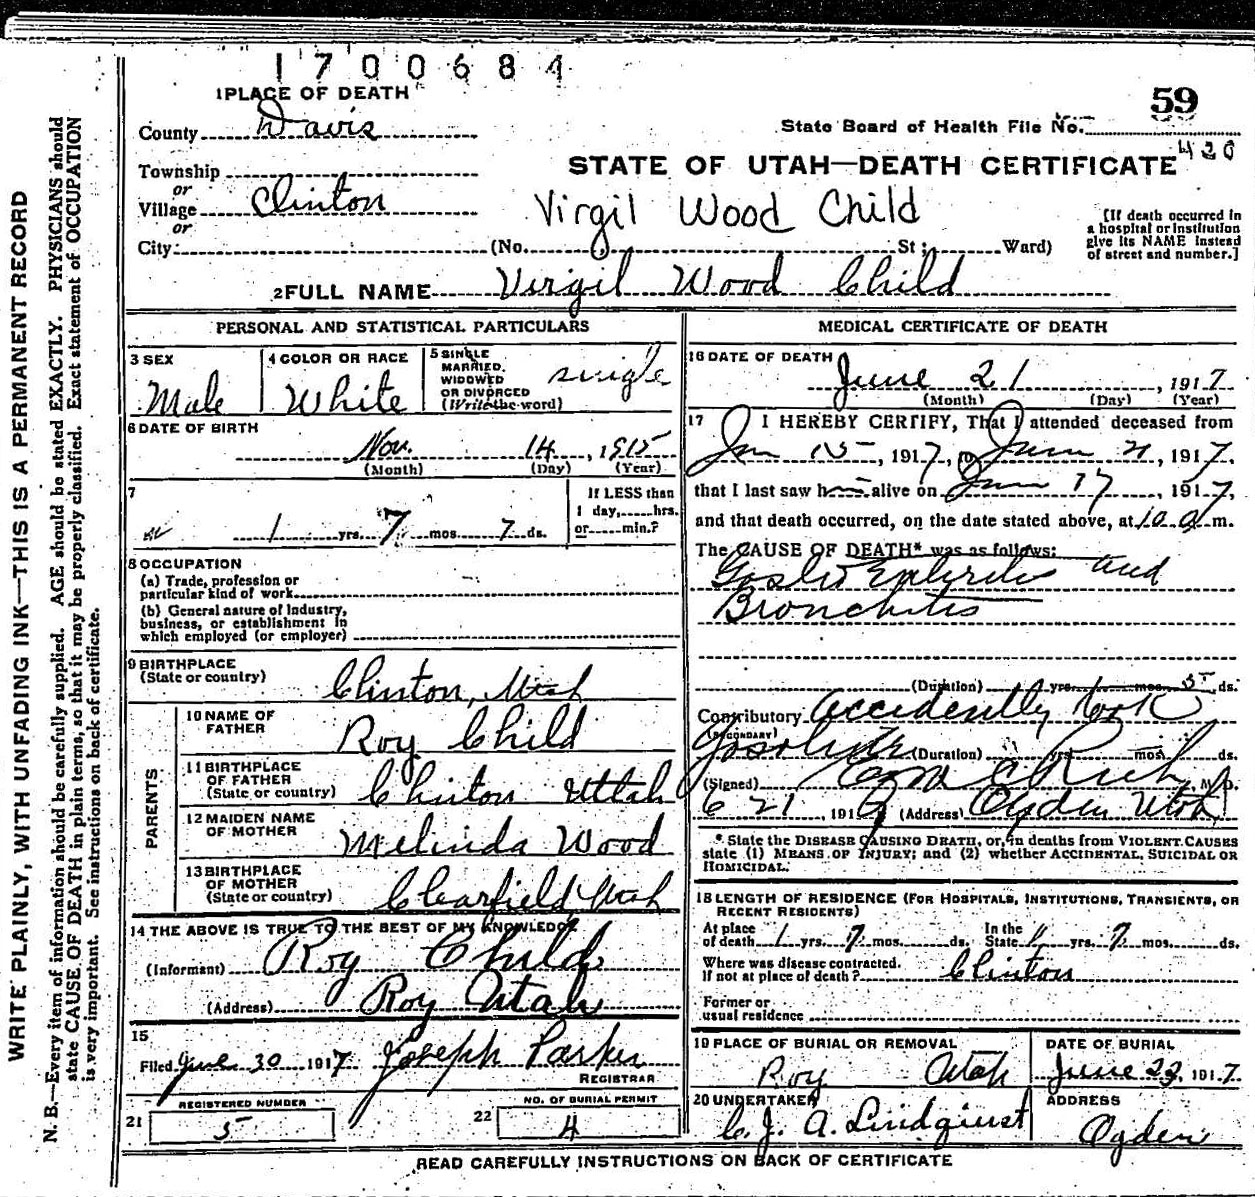 1700684
1 PLACE OF DEATH
59
County Davis
State Board of Health File No.
420
Township
STATE OF UTAH—DEATH CERTIFICATE
or
Village Clinton
Virgil Wood Child
or
City (No. St; Ward)
[If death occurred in
a hospital or institution
give its NAME instead
of street and number.]
2 FULL NAME Virgil Wood Child
PERSONAL AND STATISTICAL PARTICULARS
3 SEX
Male
4 COLOR OR RACE
White
5 SINGLE
MARRIED,
WIDOWED
OR DIVORCED
(Write the word)
single
6 DATE OF BIRTH
Nov. 14, 1915
(Month) (Day) (Year)
7
1 yrs. 7 mos. 7 ds.
If LESS than
1 day, hrs.
or min.?
8 OCCUPATION
(a) Trade, profession or
particular kind of work
(b) General nature of industry,
business, or establishment in
which employed (or employer)
9 BIRTHPLACE
(State or country)
Clinton, Utah
PARENTS
10 NAME OF
FATHER
Roy Child
11 BIRTHPLACE
OF FATHER
(State or country)
Clinton Utah
12 MAIDEN NAME
OF MOTHER
Melinda Wood
13 BIRTHPLACE
OF MOTHER
(State or country)
Clearfield Utah
14 THE ABOVE IS TRUE TO THE BEST OF MY KNOWLEDGE
(Informant) Roy Child
(Address) Roy Utah
15
Filed June 30 1917 Joseph Parker
REGISTRAR
21
REGISTERED NUMBER
5
22
NO. OF BURIAL PERMIT
4
MEDICAL CERTIFICATE OF DEATH
16 DATE OF DEATH
June 21, 1917
(Month) (Day) (Year)
17 I HEREBY CERTIFY, That I attended deceased from
Jun 15, 1917, to June 21, 1917,
that I last saw h alive on June 17, 1917,
and that death occurred, on the date stated above, at 10 a m.
The CAUSE OF DEATH* was as follows:
Gastro Enteritis and
Bronchitis
(Duration) yrs. mos. 5 ds.
Contributory Accidently took
(SECONDARY)
Gasoline (Duration) yrs. mos. ds.
(Signed) Rich, M. D.
6 21, 191 (Address) Ogden Utah
* State the DISEASE CAUSING DEATH, or, in deaths from VIOLENT CAUSES
state (1) MEANS OF INJURY; and (2) whether ACCIDENTAL, SUICIDAL OR
HOMICIDAL.
18 LENGTH OF RESIDENCE (FOR HOSPITALS, INSTITUTIONS, TRANSIENTS, OR
RECENT RESIDENTS)
At place
of death 1 yrs. 7 mos. ds.
In the
State 1 yrs. 7 mos. ds.
Where was disease contracted.
If not at place of death? Clinton
Former or
usual residence
19 PLACE OF BURIAL OR REMOVAL
Roy Utah
DATE OF BURIAL
June 23, 1917
20 UNDERTAKER
C. J. A. Lindquist
ADDRESS
Ogden
READ CAREFULLY INSTRUCTIONS ON BACK OF CERTIFICATE
WRITE PLAINLY, WITH UNFADING INK—THIS IS A PERMANENT RECORD
N. B.—Every item of information should be carefully supplied. AGE should be stated EXACTLY. PHYSICIANS should
state CAUSE OF DEATH in plain terms, so that it may be properly classified. Exact statement of OCCUPATION
is very important. See instructions on back of certificate.